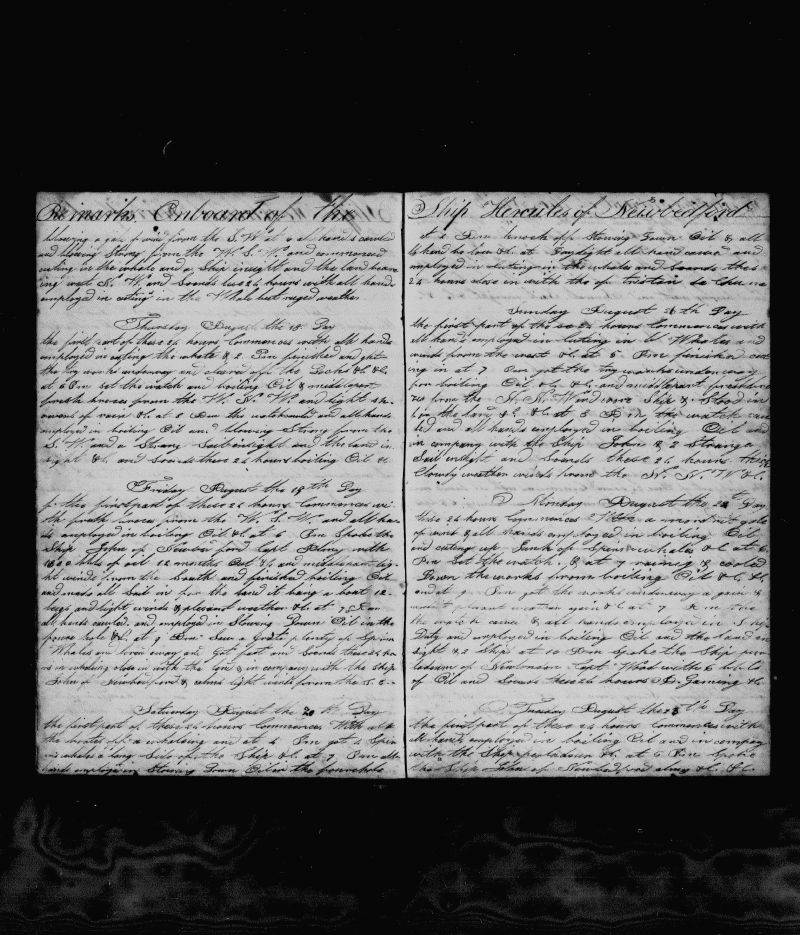 Remarks Onboard of the
blowing a gale of wind from the S. W. at 4 all hands called
and blowing Strong from the W. S. W. and commenced
cuting in the whale and a Ship insight and the land bearing
ing west N. W. and Sounds these 24 hours with all hands
employed in cuting in the Whale but ruged weather
Thursday August the 18 Day
the first part of these 24 hours Commences with all hands
employed in cutting the whale & 2 Pm finished and got
the try works underway and cleared off the Decks &c &c
at 6 Pm set the watch and boiling Oil & middle part
fresh breeses from the W. N. W. and light
of rain &c at 8 Am the watch called and all hands
employed in boiling Oil and blowing Strong from the
S. W. and a Strang Sail insight and the land in
sight &c and Sounds these 24 hours boiling Oil &c
Friday August the 19th Day
the first part of these 24 hours Commences with
fresh breses from the W. S. W. and all hands
employed in boiling Oil &c at 6 Pm Spoke the
Ship John of Newbedford Capt with
bbls of oil 12 months Out &c and middle part
winds from the South and finished boiling Oil
and made all Sail in for the land it being about 12
leags and light winds & plesent weather &c at 7 Am
all hands called, and employed in Stowing Down Oil in the
hole &c at 9 Am Saw a Great plenty of Sperm
Whales and lowerd away and Got fast and Sounds these 24 hours
in whaleing close in with the land & in company with the Ship
John of Newbedford & calms light winds from the S. E.
Saturday August the 20th Day
the first part of these 24 hours Commences With all
the boats of a whaleing and at 4 Pm got 4 Sperm
whales a long Side of the Ship &c at 7 Pm all
hands employed in Stowing Down Oil in the forehole
Ship Hercules of Newbedford
at 2 Am knock off Stowing Down Oil & all
hands to &c at Daylight all hands called and
employed in cutting in the whales and Sounds these
24 hours close in with the
Sunday August 21th Day
the first part of these 24 hours Commences with
all hands employed in cuting in the Whales and
winds from the west &c at 5 Pm finished cut
ing in at 7 Pm got the try works underway
for boiling Oil &c &c and middle part fresh
from the N. W. Wind wore Ship & Stood in
for the land &c &c at 8 Am the watch cal
led and all hands employed in boiling Oil and
in company with the Ship John & 2 Strange
Sail insight and Sounds these 24 hours thick
Cloudy weather winds from the N. N. W &c
Monday August the 22th Day
these 24 hours Commences With a moderate gale
of wind & all hands employed in boiling Oil
and cuting up Junk of Sperm whale &c at 6
Pm Set the watch, & at 7 raining & cooled
Down the works from boiling Oil &c &c
and at 9 Pm got the works underway again &
plesant weather again &c at 7 Am
the watch called & all hands employed in Ships
Duty and employed in boiling Oil and the land in
sight & 2 Ships at 10 Am Spoke the Ship
of Capt Wood with 6 bbls
of Oil and Sounds these 24 hours Gaming &c
Tuesday August the 23th Day
the first part of these 24 hours commences with
all hands employed in boiling Oil and in company
with the Ship &c at 6 Pm Spoke
the Ship John of Newbedford &c &c